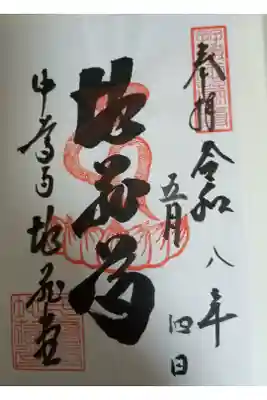 奉拝
令和八年
五月四日
地蔵尊
中尊寺 地蔵堂